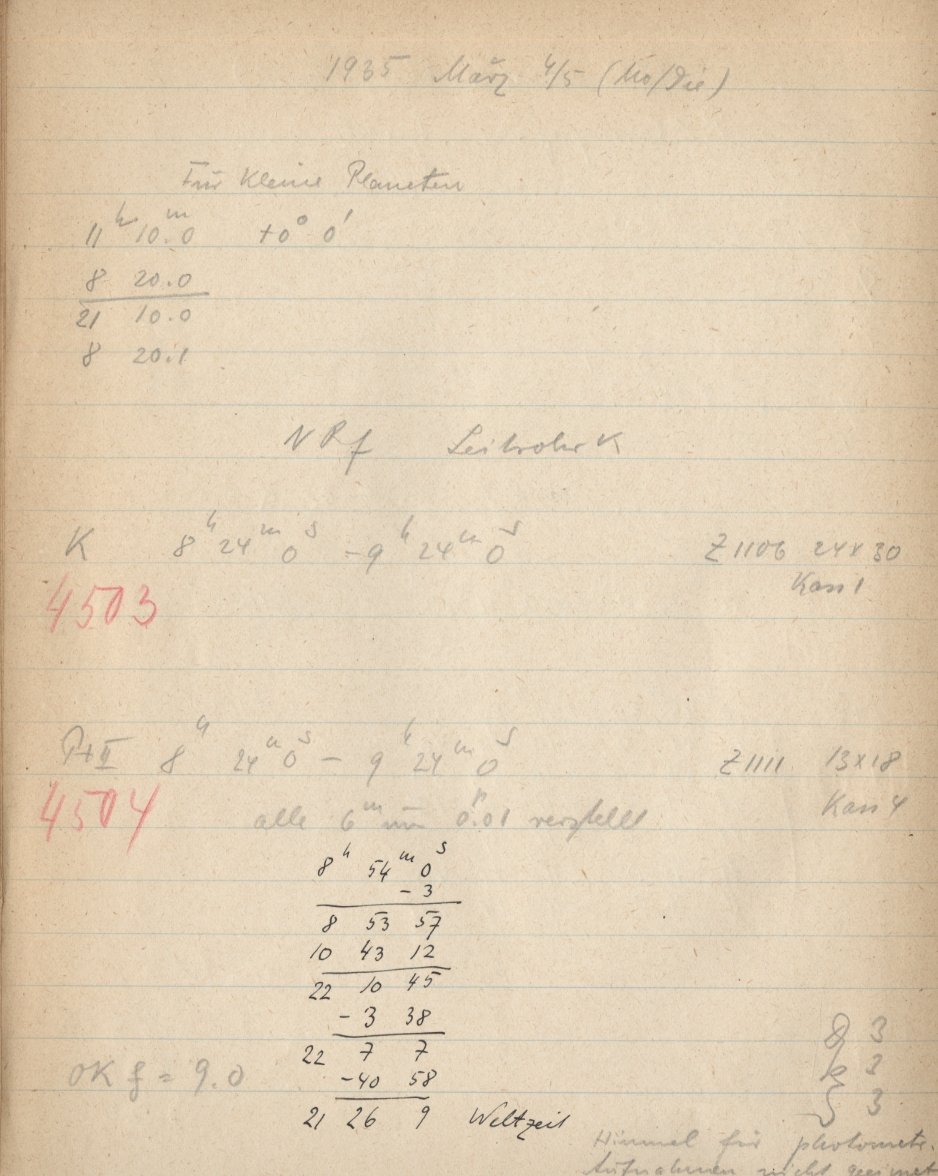 1935 März 4/5 (Mo/Die)
Für Kleine Planeten
11ʰ 10ᵐ.0 +0° 0'
8 20.0
21 10.0
8 20.1
NRf Leitrohr K
K 8ʰ 24ᵐ 0ˢ - 9ʰ 24ᵐ 0ˢ Z1106 24x30
4503 Kass 1
Pt II 8ʰ 24ᵐ 0ˢ - 9ʰ 24ᵐ 0ˢ Z1111 13x18
4504 alle 6ᵐ um 0.01 verstellt Kass 4
8ʰ 54ᵐ 0ˢ
- 3
8 53 57
10 43 12
22 10 45
- 3 38
22 7 7
-40 58
OK f = 9.0
21 26 9 Weltzeit
3
3
3
Himmel für photometr.
Aufnahmen nicht geeignet